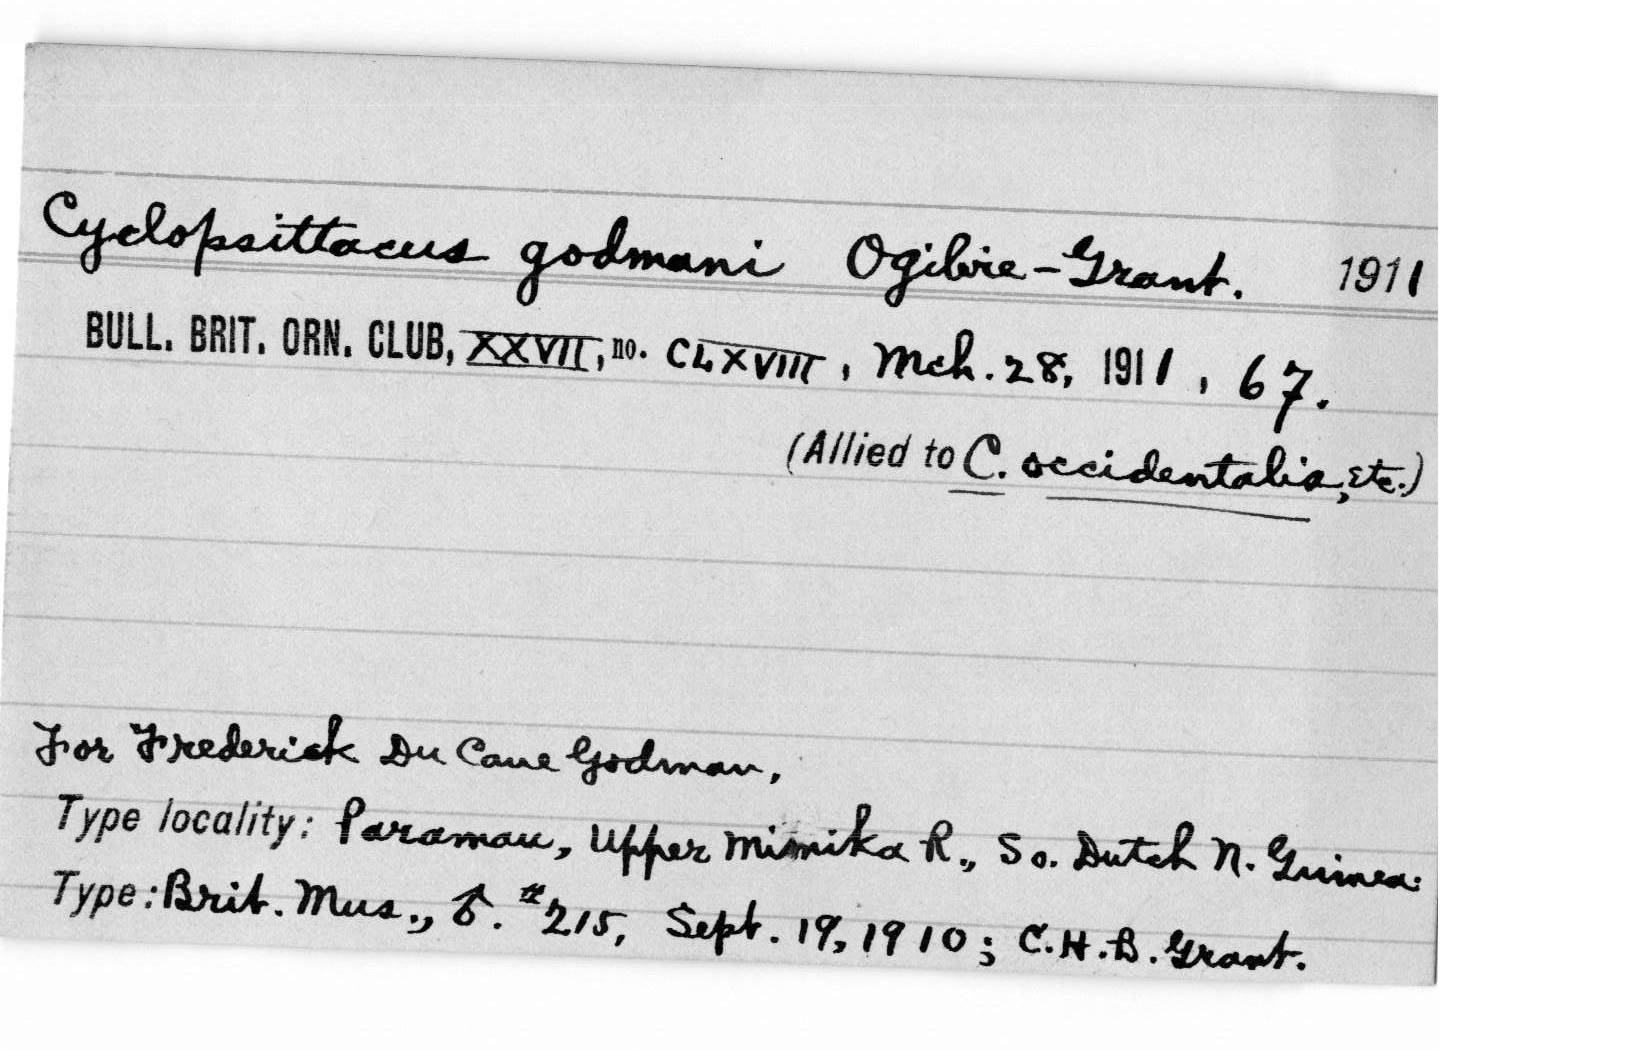 Cyclopsittacus godmani Ogilvie-Grant. 1911
BULL. BRIT. ORN. CLUB, XXVII, no. CLXVIII, Mch. 28, 1911, 67.
(Allied to C. occidentalis, etc.)
For Frederick Du Cane Godman,
Type locality: Paramau, Upper Mimika R., So. Dutch N. Guinea.
Type: Brit. Mus., ♂. #215, Sept. 19, 1910; C.H.B. Grant.